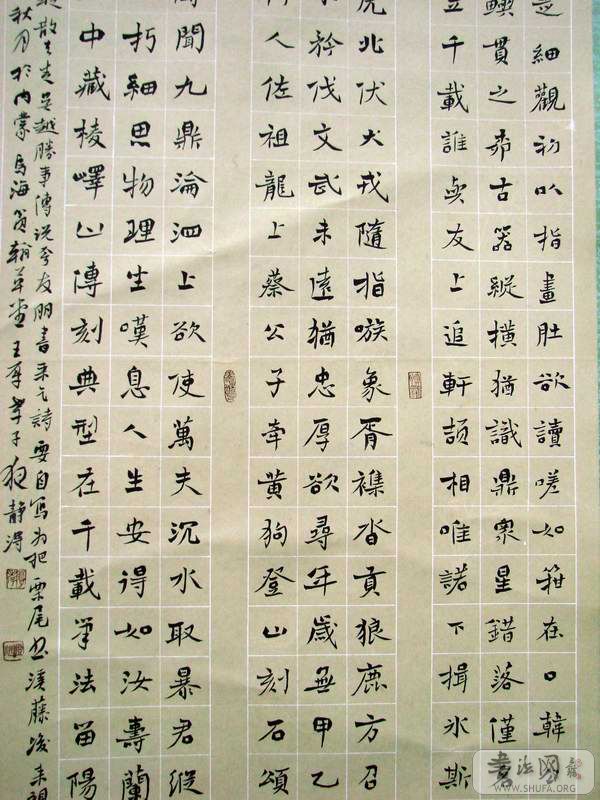 細觀初以指畫肚欲讀嗟如箝在口韓
鱮貫之古器縱橫猶識鼎衆星錯落僅名
立千載誰與友上追軒頡相唯諾下揖冰斯
虎北伏犬戎隨指嗾象胥雜沓貢狼鹿方召
矜伐文武未遠猶忠厚欲尋年歲無甲乙
行人佐祖龍上蔡公子牽黃狗登山刻石頌
聞九鼎淪泗上欲使萬夫沉水取暴君縱
朽細思物理坐嘆息人生安得如汝壽蘭
中藏棱嶧山傳刻典型在千載筆法留陽
散走吳越勝事傳說夸友朋書來乞詩要自寫為把栗尾書溪藤後來視
秋月於內蒙烏海
書法网
WWW.SHUFA.ORG